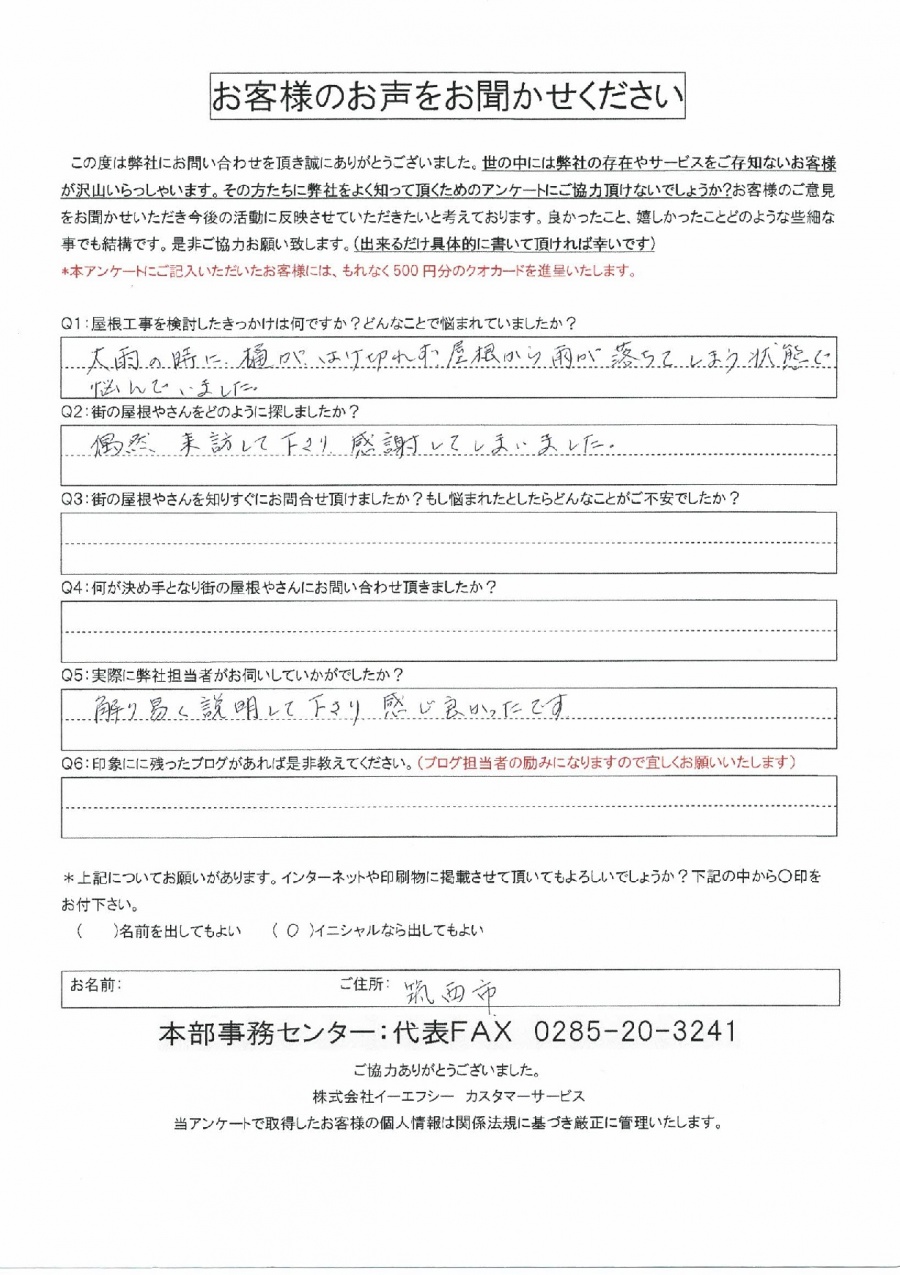 お客様のお声をお聞かせください
この度は弊社にお問い合わせを頂き誠にありがとうございました。世の中には弊社の存在やサービスをご存知ないお客様
が沢山いらっしゃいます。その方たちに弊社をよく知って頂くためのアンケートにご協力頂けないでしょうか?お客様のご意見
をお聞かせいただき今後の活動に反映させていただきたいと考えております。良かったこと、嬉しかったことどのような些細な
事でも結構です。是非ご協力お願い致します。(出来るだけ具体的に書いて頂ければ幸いです)
*本アンケートにご記入いただいたお客様には、もれなく500円分のクオカードを進呈いたします。
Q1:屋根工事を検討したきっかけは何ですか?どんなことで悩まれていましたか?
大雨の時に、樋が、はけ切れず、屋根から雨が落ちてしまう状態で
悩んでいました。
Q2:街の屋根やさんをどのように探しましたか?
偶然、来訪して下さり、感謝してしまいました。
Q3:街の屋根やさんを知りすぐにお問合せ頂けましたか?もし悩まれたとしたらどんなことがご不安でしたか?
Q4:何が決め手となり街の屋根やさんにお問い合わせ頂きましたか?
Q5:実際に弊社担当者がお伺いしていかがでしたか?
解り易く説明して下さり 感じ良かったです
Q6:印象にに残ったブログがあれば是非教えてください。(ブログ担当者の励みになりますので宜しくお願いいたします)
*上記についてお願いがあります。インターネットや印刷物に掲載させて頂いてもよろしいでしょうか?下記の中から〇印を
お付下さい。
(　)名前を出してもよい　(〇)イニシャルなら出してもよい
お名前:　ご住所: 筑西市
本部事務センター:代表FAX 0285-20-3241
ご協力ありがとうございました。
株式会社イーエフシー カスタマーサービス
当アンケートで取得したお客様の個人情報は関係法規に基づき厳正に管理いたします。